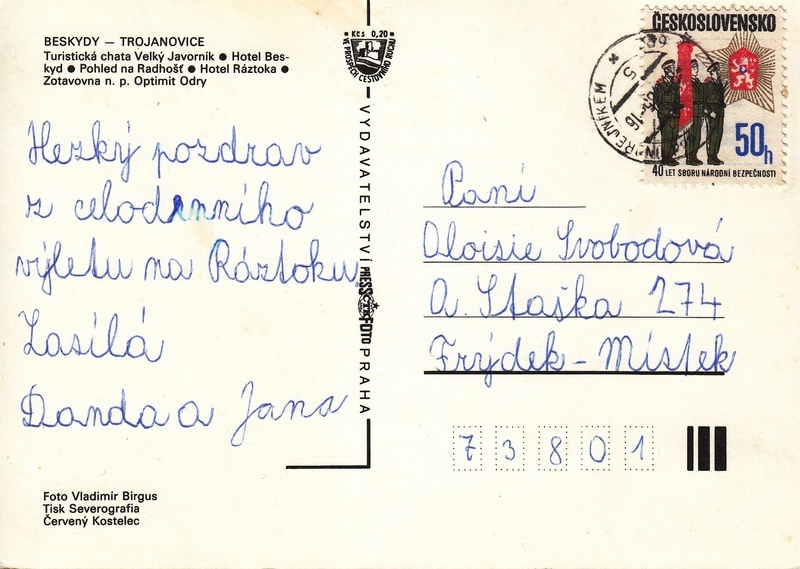 BESKYDY — TROJANOVICE
Turistická chata Velký Javorník ● Hotel Bes-
kyd ● Pohled na Radhošť ● Hotel Ráztoka ●
Zotavovna n. p. Optimit Odry
Hezký pozdrav
z celodenního
výletu na Ráztoku
Zasílá
Danda a Jana
Foto Vladimír Birgus
Tisk Severografia
Červený Kostelec
Kčs 0,20
VE PROSPĚCH CESTOVNÍHO RUCHU
VYDAVATELSTVÍ PRESSFOTO PRAHA
ČESKOSLOVENSKO
50h
40 LET SBORU NÁRODNÍ BEZPEČNOSTI
Paní
Aloisie Svobodová
A. Staška 274
Frýdek - Místek
73801